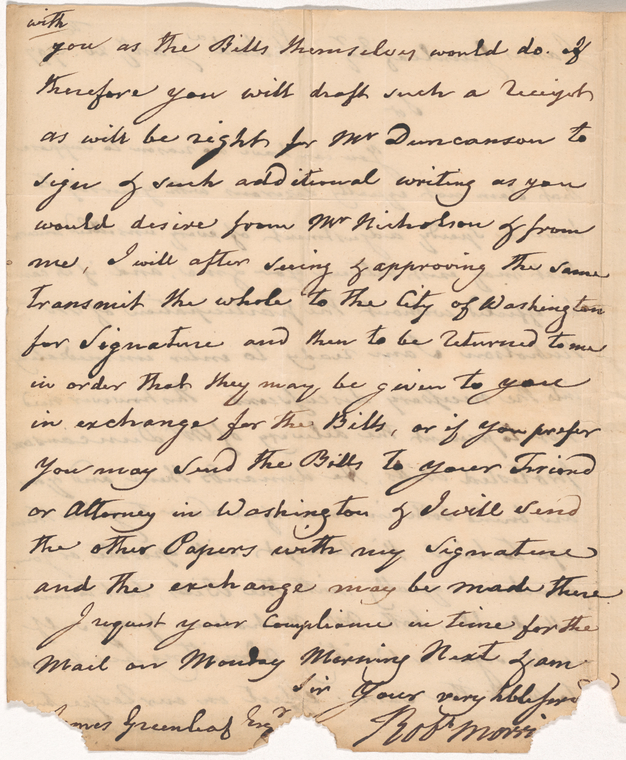 with
you as the Bills themselves would do. If
therefore you will draft such a receipt
as will be right for Mr Duncanson to
sign & such additional writing as you
would desire from Mr Nicholson & from
me, I will after seeing & approving the same
transmit the whole to the City of Washington
for Signature and then to be returned to me
in order that they may be given to you
in exchange for the Bills, or if you prefer
you may send the Bills to your Friend
or Attorney in Washington & I will send
the other Papers with my Signature
and the exchange may be made there
I request your Compliance in time for the
Mail on Monday Morning Next & am
Sir Your very hble
James Greenleaf Esqr
Robt Morris